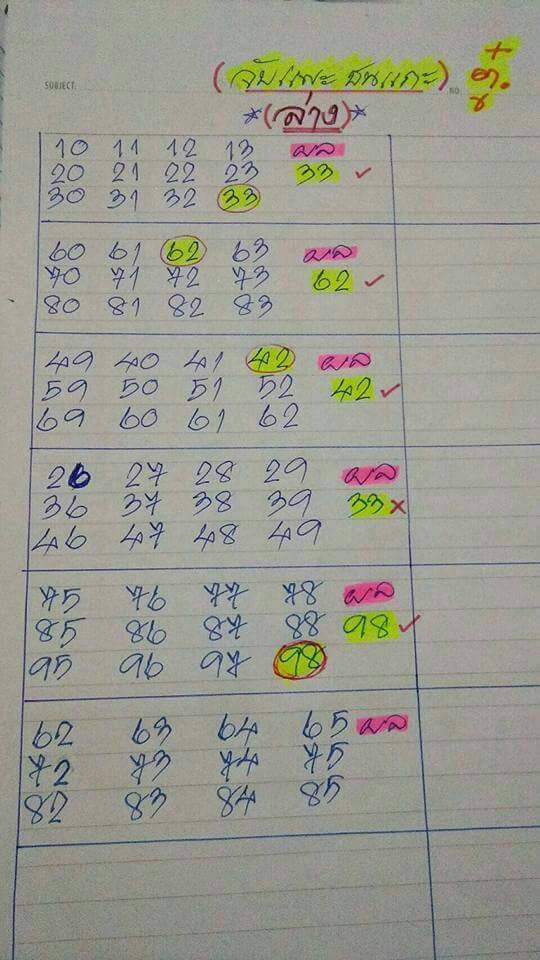 SUBJECT:
(จับแพะ ชนแกะ) NO.
*(ล่าง)*
10 11 12 13 ผล
20 21 22 23 33 ✓
30 31 32 33
60 61 62 63 ผล
70 71 72 73 62 ✓
80 81 82 83
49 40 41 42 ผล
59 50 51 52 42 ✓
69 60 61 62
26 27 28 29 ผล
36 37 38 39 33 ×
46 47 48 49
75 76 77 78 ผล
85 86 87 88 98 ✓
95 96 97 98
62 63 64 65 ผล
72 73 74 75
82 83 84 85